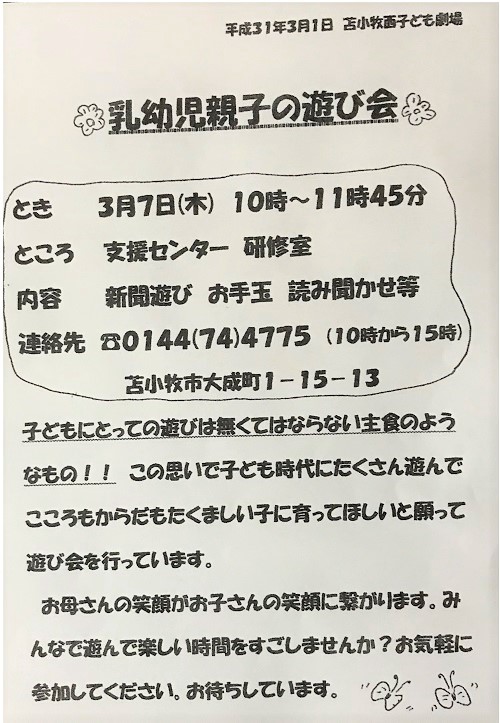 平成31年3月1日 苫小牧西子ども劇場
乳幼児親子の遊び会
とき 3月7日(木) 10時～11時45分
ところ 支援センター 研修室
内容 新聞遊び お手玉 読み聞かせ等
連絡先 ☎0144(74)4775 (10時から15時)
苫小牧市大成町1－15－13
子どもにとっての遊びは無くてはならない主食のよう
なもの！！ この思いで子ども時代にたくさん遊んで
こころもからだもたくましい子に育ってほしいと願って
遊び会を行っています。
お母さんの笑顔がお子さんの笑顔に繋がります。み
んなで遊んで楽しい時間をすごしませんか？お気軽に
参加してください。お待ちしています。